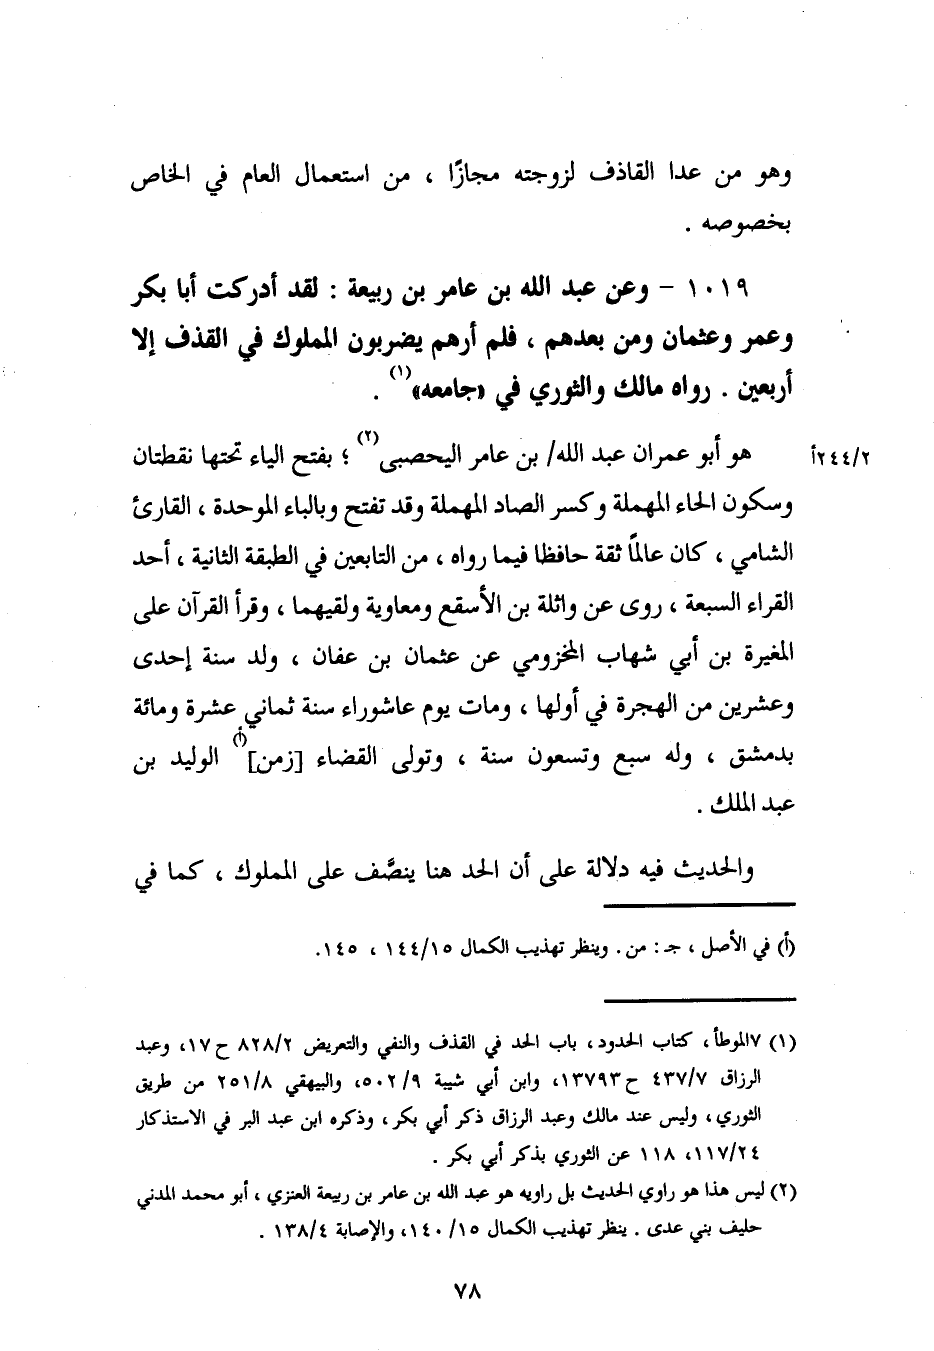 وهو من عدا القاذف لزوجته مجازًا ، من استعمال العام في الخاص
بخصوصه .
١٠١٩ - وعن عبد الله بن عامر بن ربيعة : لقد أدركت أبا بكر
وعمر وعثمان ومن بعدهم ، فلم أرهم يضربون المملوك في القذف إلا
أربعين . رواه مالك والثوري في «جامعه»(١) .
هو أبو عمران عبد الله/ بن عامر اليحصبى(٢) ؛ بفتح الياء تحتها نقطتان
٢/٢٤٤أ
وسكون الحاء المهملة وكسر الصاد المهملة وقد تفتح وبالباء الموحدة ، القارئ
الشامي ، كان عالمًا ثقة حافظا فيما رواه ، من التابعين في الطبقة الثانية ، أحد
القراء السبعة ، روى عن واثلة بن الأسقع ومعاوية ولقيهما ، وقرأ القرآن على
المغيرة بن أبي شهاب المخزومي عن عثمان بن عفان ، ولد سنة إحدى
وعشرين من الهجرة في أولها ، ومات يوم عاشوراء سنة ثماني عشرة ومائة
بدمشق ، وله سبع وتسعون سنة ، وتولى القضاء [زمن](أ) الوليد بن
عبد الملك .
والحديث فيه دلالة على أن الحد هنا ينصَّف على المملوك ، كما في
(أ) في الأصل ، جـ : من . وينظر تهذيب الكمال ١٥/ ١٤٤ ، ١٤٥.
(١) ٧الموطأ، كتاب الحدود، باب الحد في القذف والنفي والتعريض ٢/ ٨٢٨ ح ١٧، وعبد
الرزاق ٧/ ٤٣٧ ح ١٣٧٩٣، وابن أبي شيبة ٩/ ٥٠٢، والبيهقي ٨/ ٢٥١ من طريق
الثوري ، وليس عند مالك وعبد الرزاق ذكر أبي بكر ، وذكره ابن عبد البر في الاستذكار
٢٤/ ١١٧، ١١٨ عن الثوري بذكر أبي بكر .
(٢) ليس هذا هو راوي الحديث بل راويه هو عبد الله بن عامر بن ربيعة العنزي ، أبو محمد المدني
حليف بني عدى . ينظر تهذيب الكمال ١٥/ ١٤٠، والإصابة ٤/ ١٣٨ .
٧٨